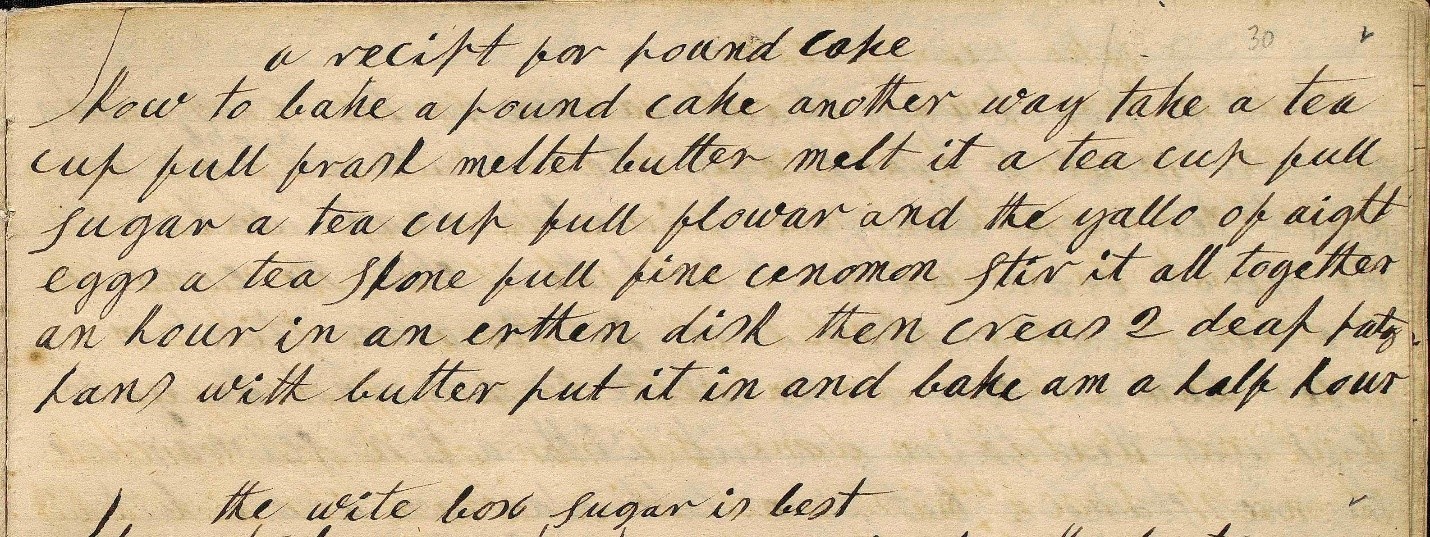 a recipt for pound cake 30
how to bake a pound cake another way take a tea
cup full frash meltet butter melt it a tea cup full
sugar a tea cup full flowar and the yallo of aight
eggs a tea spone full fine cenomon stir it all together
an hour in an erthen dish then creas 2 deap
pans with butter put it in and bake am a half hour
the wite box sugar is best